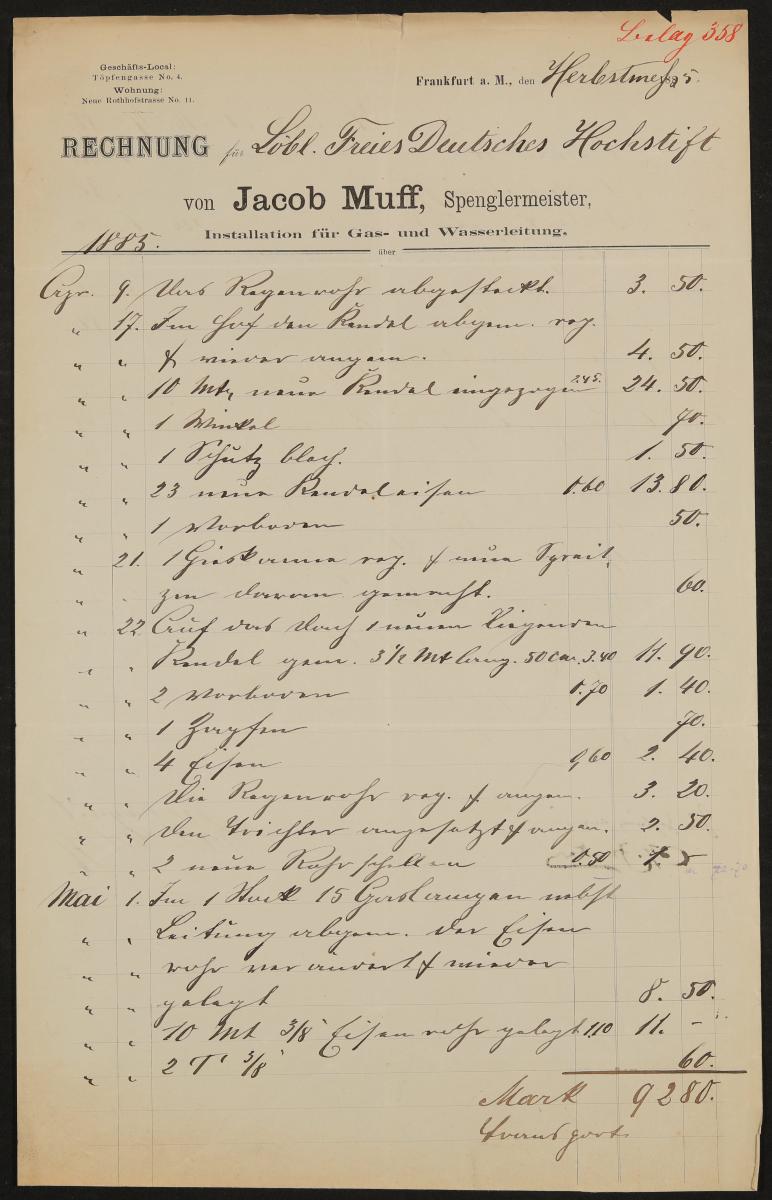 Beleg 358
Geschäfts-Local:
Töpfengasse No. 4.
Wohnung:
Neue Rothhofstrasse No. 11.
Frankfurt a. M., den Herbstmeß 1885.
RECHNUNG für Löbl. Freies Deutsches Hochstift
von Jacob Muff, Spenglermeister,
Installation für Gas- und Wasserleitung.
1885.
über
Apr. 9. Das Regenrohr abgesteckt. 3. 50.
" 17. Im Hof den Kendel abgem. rep.
" " & wieder angem. 4. 50.
" " 10 Mtr neue Kendel eingezogen 2.45. 24. 50.
" " 1 Winkel 70.
" " 1 Schutz blech. 1. 50.
" " 23 neue Kendeleisen 0.60 13. 80.
" " 1 Vorboden 50.
" 21. 1 Gieskanne rep. & neue Spreit
" " zen daran gemacht. 60.
" 22. Auf das Dach 1 neuen liegenden
" " Kendel gem. 3 1/2 Mt lang. 50 cm. 3.40 11. 90.
" " 2 Vorboden 0.70 1. 40.
" " 1 Zapfen 70.
" " 4 Eisen 0,60 2. 40.
" " Die Regenrohr rep. & angem. 3. 20.
" " Den Trichter angesetzt & angem. 2. 50.
" " 2 neue Rohrschellen 0.80
Mai 1. Im 1 Stock 15 Gaslampen nebst
" " Leitung abgem. der Eisen
" " rohr verändert & wieder
" " gelegt 8. 50.
" " 10 Mt 3/8" Eisenrohr gelegt 1.10 11. -
" " 2 T 3/8" 60.
Mark 92 80.
Transport